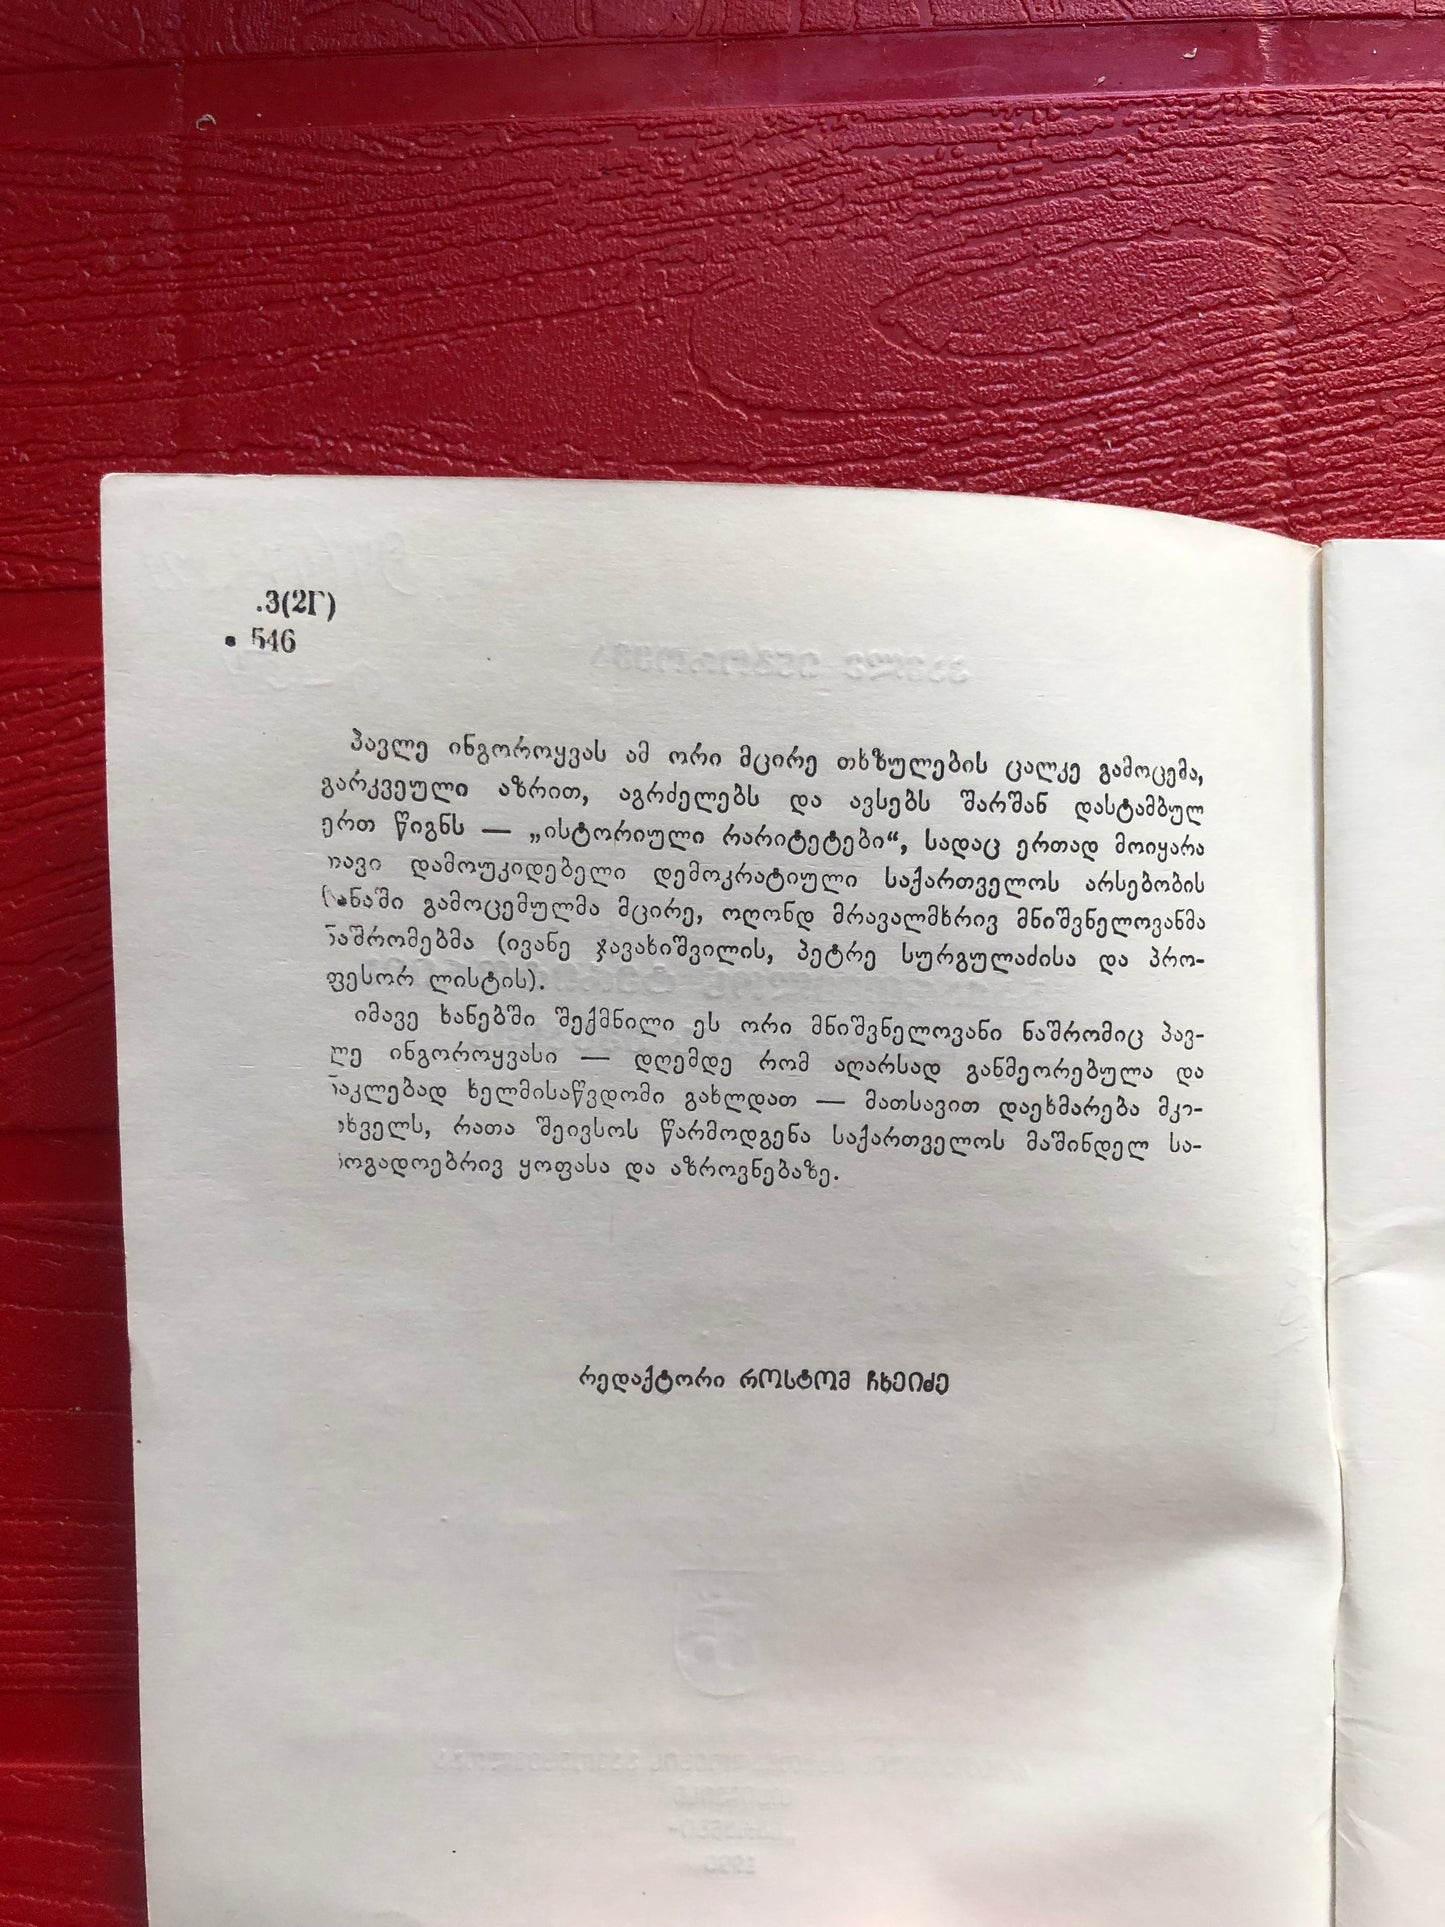 .3(2Г)
546
პავლე ინგოროყვას ამ ორი მცირე თხზულების ცალკე გამოცემა,
გარკვეული აზრით, აგრძელებს და ავსებს შარშან დასტამბულ
ერთ წიგნს — „ისტორიული რარიტეტები“, სადაც ერთად მოიყარა
თავი დამოუკიდებელი დემოკრატიული საქართველოს არსებობის
ხანაში გამოცემულმა მცირე, ოღონდ მრავალმხრივ მნიშვნელოვანმა
ნაშრომებმა (ივანე ჯავახიშვილის, პეტრე სურგულაძისა და პრო-
ფესორ ლისტის).
იმავე ხანებში შექმნილი ეს ორი მნიშვნელოვანი ნაშრომიც პავ-
ლე ინგოროყვასი — დღემდე რომ აღარსად განმეორებულა და
ნაკლებად ხელმისაწვდომი გახლდათ — მათსავით დაეხმარება მკი-
თხველს, რათა შეივსოს წარმოდგენა საქართველოს მაშინდელ სა-
ზოგადოებრივ ყოფასა და აზროვნებაზე.
რედაქტორი როსტომ ჩხეიძე